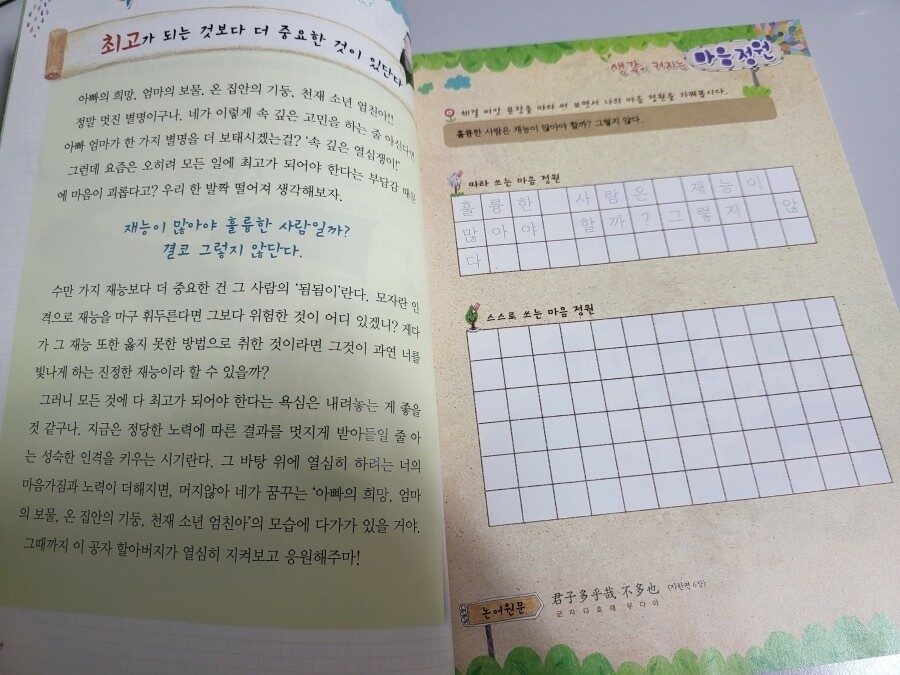 최고가 되는 것보다 더 중요한 것이 있단다
아빠의 희망, 엄마의 보물, 온 집안의 기둥, 천재 소년 엄친아!!
정말 멋진 별명이구나. 네가 이렇게 속 깊은 고민을 하는 줄 아신다면
아빠 엄마가 한 가지 별명을 더 보태시겠는걸? '속 깊은 열심쟁이!'
그런데 요즘은 오히려 모든 일에 최고가 되어야 한다는 부담감 때문
에 마음이 괴롭다고? 우리 한 발짝 떨어져 생각해보자.
재능이 많아야 훌륭한 사람일까?
결코 그렇지 않단다.
수만 가지 재능보다 더 중요한 건 그 사람의 '됨됨이'란다. 모자란 인
격으로 재능을 마구 휘두른다면 그보다 위험한 것이 어디 있겠니? 게다
가 그 재능 또한 옳지 못한 방법으로 취한 것이라면 그것이 과연 너를
빛나게 하는 진정한 재능이라 할 수 있을까?
그러니 모든 것에 다 최고가 되어야 한다는 욕심은 내려놓는 게 좋을
것 같구나. 지금은 정당한 노력에 따른 결과를 멋지게 받아들일 줄 아
는 성숙한 인격을 키우는 시기란다. 그 바탕 위에 열심히 하려는 너의
마음가짐과 노력이 더해지면, 머지않아 네가 꿈꾸는 '아빠의 희망, 엄마
의 보물, 온 집안의 기둥, 천재 소년 엄친아'의 모습에 다가가 있을 거야.
그때까지 이 공자 할아버지가 열심히 지켜보고 응원해주마!
생각이 커지는 마음 정원
해결 씨앗 문장을 따라 써 보면서 나의 마음 정원을 가꿔봅시다.
훌륭한 사람은 재능이 많아야 할까? 그렇지 않다.
따라 쓰는 마음 정원
훌륭한 사람은 재능이
많아야 할까? 그렇지 않
다.
스스로 쓰는 마음 정원
논어원문
君子多乎哉 不多也 (자한편 6장)
군자다호재 부다야